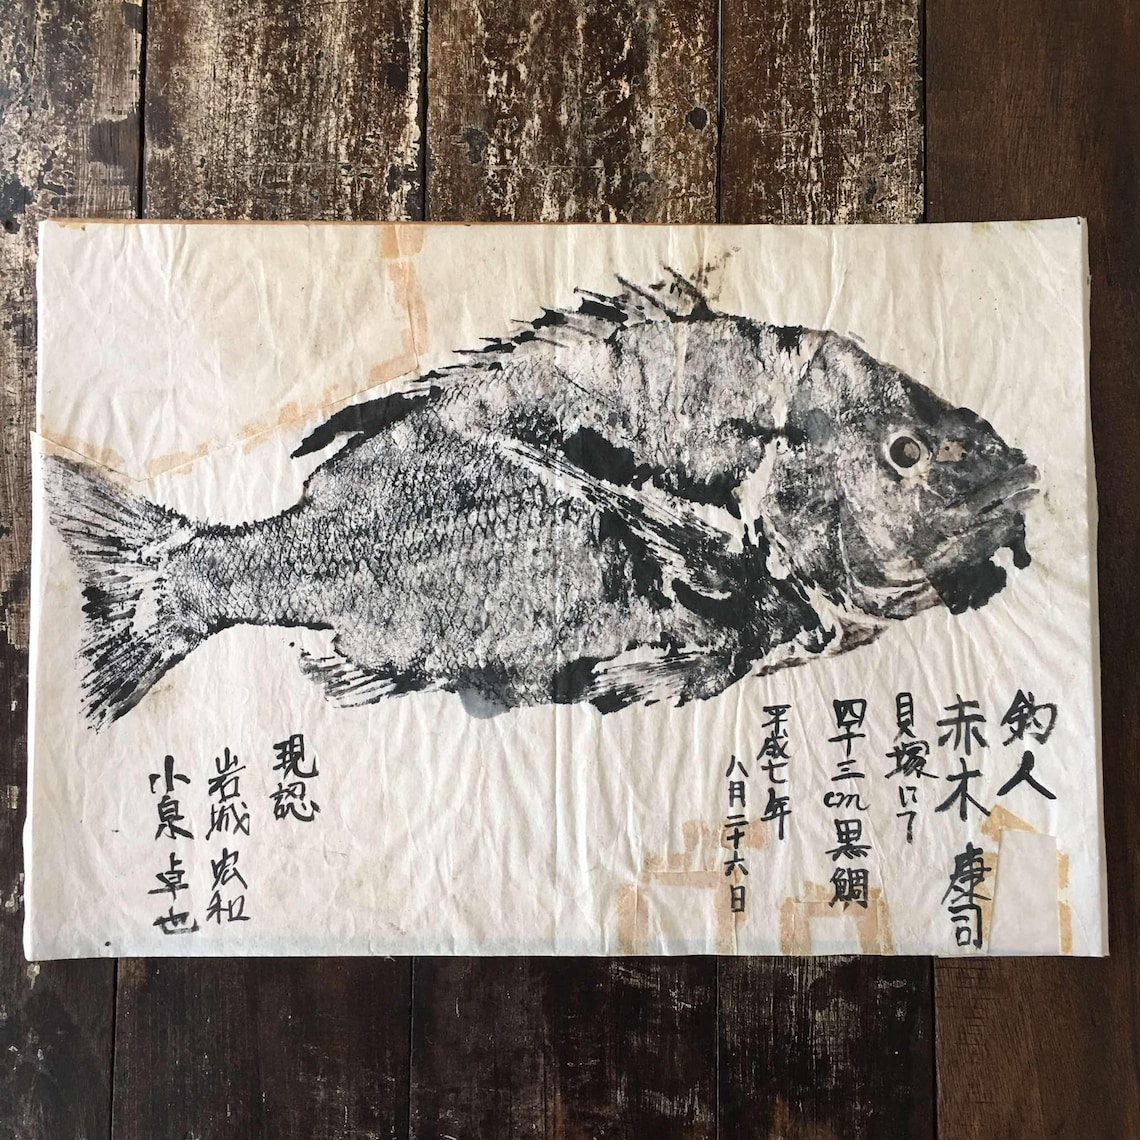 釣人
赤木 康司
貝塚にて
四十三cm黒鯛
平成七年
八月二十六日
現認
岩城 宏和
小泉 卓也